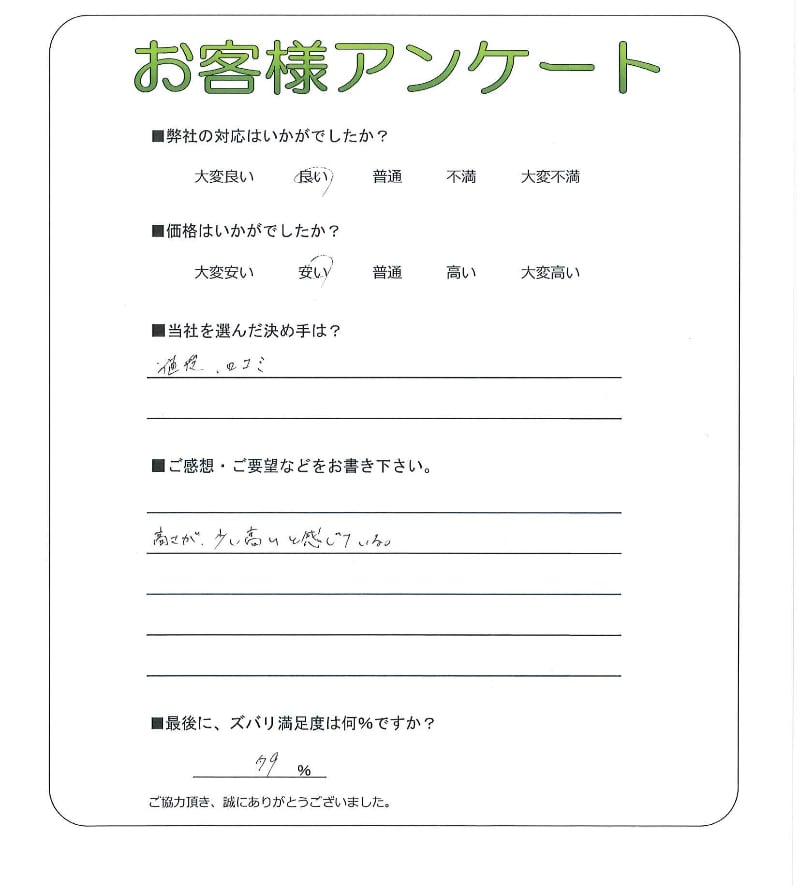 お客様アンケート
■弊社の対応はいかがでしたか？
大変良い 良い 普通 不満 大変不満
■価格はいかがでしたか？
大変安い 安い 普通 高い 大変高い
■当社を選んだ決め手は？
値段、口コミ
■ご感想・ご要望などをお書き下さい。
高さが、少し高いと感じている。
■最後に、ズバリ満足度は何%ですか？
%
ご協力頂き、誠にありがとうございました。